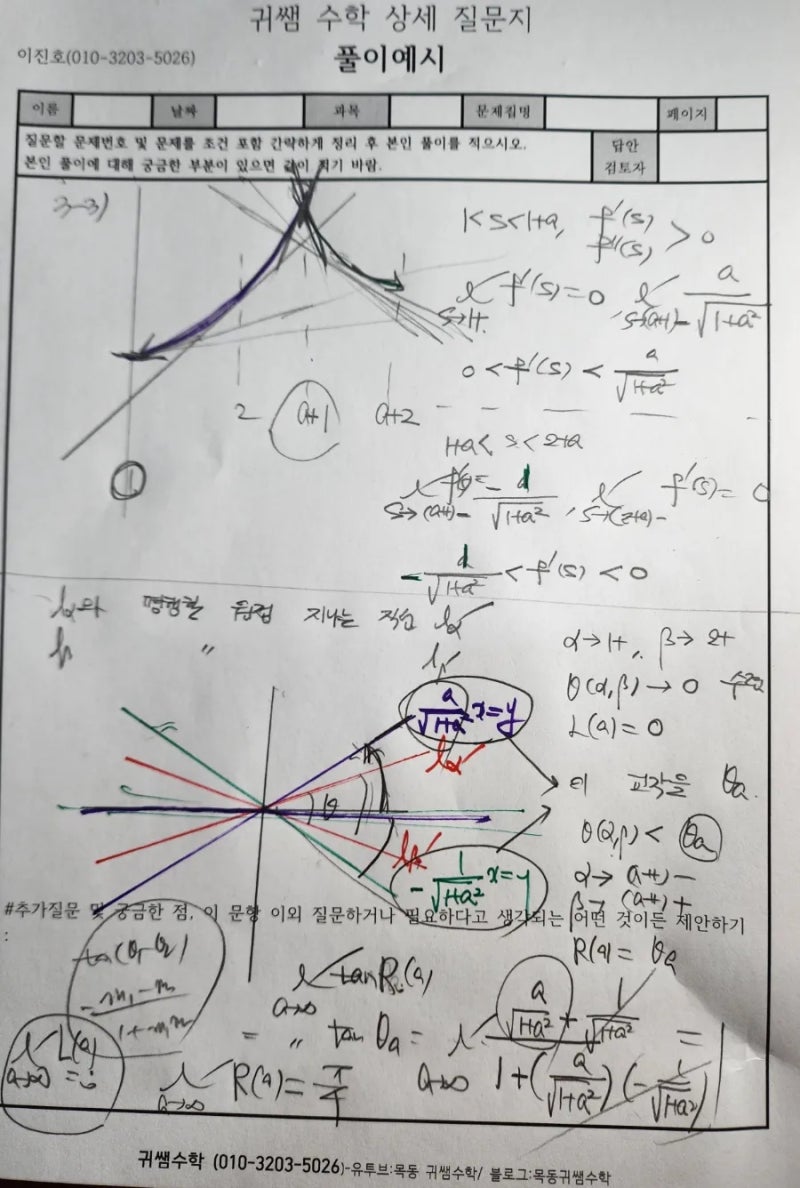 귀쌤 수학 상세 질문지
이진호(010-3203-5026)
풀이예시
이름 날짜 과목 문제집명 페이지
질문할 문제번호 및 문제를 조건 포함 간략하게 정리 후 본인 풀이를 적으시오.
본인 풀이에 대해 궁금한 부분이 있으면 같이 적기 바람.
답안
검토자
3-3)
1<s<1+a, f'(s) f''(s) > 0
s→1+ f'(s)=0 s→(a+1)- a/√(1+a²)
0<f'(s)< a/√(1+a²)
2 a+1 a+2
1+a< s<2+a
s→(a+1)- -1/√(1+a²), s→(2+a)- f'(s)=0
-1/√(1+a²) <f'(s)<0
0
lα와 평행할 원점 지나는 직선 lα'
"
α→1+, β→2+
θ(α,β)→0
L(a)=0
a/√(1+a²) x=y
lα'
이 교각을 θa.
θ
θ(α,β)<θa
-1/√(1+a²) x=y
α→(a+1)-
β→(a+1)+
#추가질문 및 궁금한 점, 이 문항 이외 질문하거나 필요하다고 생각되는 어떤 것이든 제안하기
:
R(a)=θa
tan(θ1-θ2)
a→∞ tanR(a)
= " tanθa = a→∞ (a/√(1+a²) + 1/√(1+a²)) / (1+(a/√(1+a²))(-1/√(1+a²))) = 1
a→∞ L(a)=0
a→∞ R(a)=π/4
귀쌤수학 (010-3203-5026)-유투브:목동 귀쌤수학/ 블로그:목동귀쌤수학